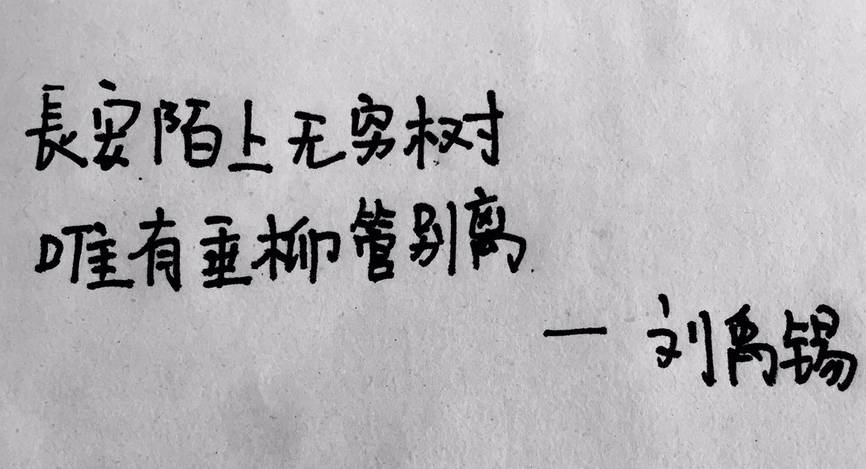 長安陌上无穷树
唯有垂柳管别离
— 刘禹锡